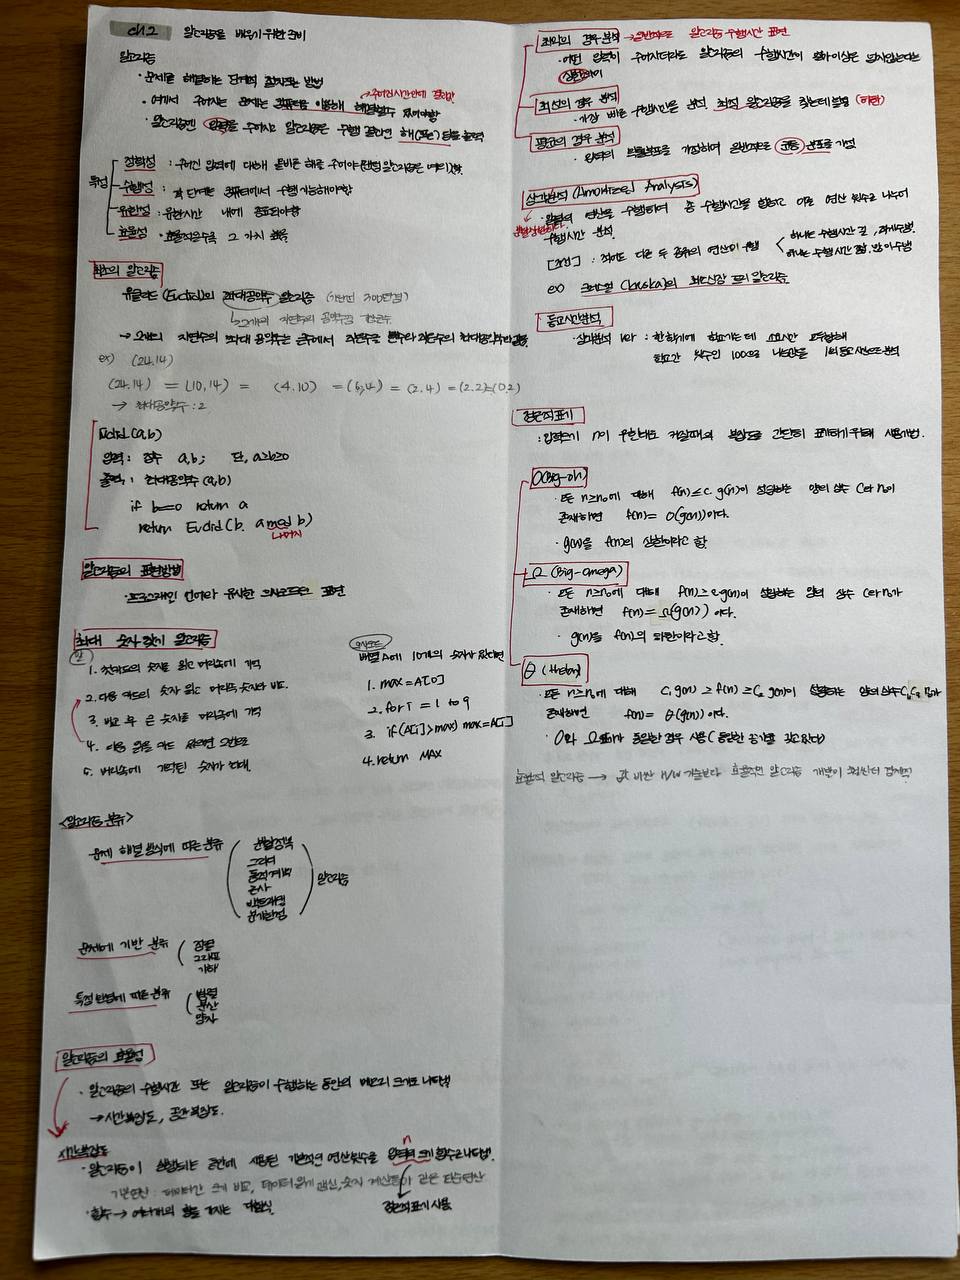 ch.2 알고리즘을 배우기 위한 준비
알고리즘
· 문제를 해결하는 단계적 절차또는 방법
→ 주어진시간안에 결과값!
· 여기서 주어지는 문제는 컴퓨터를 이용해 해결할수 있어야함
· 알고리즘엔 입력을 주어지고 알고리즘은 수행 결과인 해(또는) 답을 출력
특성
정확성 : 주어진 입력에 대해 올바른 해를 주어야함
수행성 : 각 단계는 컴퓨터에서 수행 가능해야함
유한성 : 유한시간 내에 종료되야함
효율성 : 효율적일수록 그 가치 높음
최초의 알고리즘
유클리드(Euclid)의 최대공약수 알고리즘 (기원전 300년경)
2개의 자연수의 공약수중 가장큰수
→ 2개의 자연수의 최대 공약수는 큰수에서 작은수를 뺀수와 작은수의 최대공약수와 같음
ex) (24.14)
(24.14) = (10,14) = (4.10) = (6,4) = (2.4) = (2.2)=(0.2)
→ 최대공약수 : 2
Euclid (a,b)
입력: 정수 a,b; 단, a≥b≥0
출력: 최대공약수 (a,b)
if b==0 return a
return Euclid (b. a mod b)
나머지
알고리즘의 표현방법
· 프로그래밍 언어와 유사한 의사코드로 표현
최대 숫자 찾기 알고리즘
말
1. 첫카드의 숫자를 읽고 머리속에 기억
2. 다음 카드의 숫자 읽고 머리속 숫자와 비교.
3. 비교 후 큰 숫자를 머리속에 기억
4. 다음 읽을 카드 있으면 2번으로
5. 머리속에 기억된 숫자가 최대.
의사코드
배열 A에 10개의 숫자가 있다면
1. max=A[0]
2. for i = 1 to 9
3. if(A[i]>max) max=A[i]
4. return MAX
<알고리즘 분류>
문제 해결 방식에 따른 분류
분할정복
그리디
동적계획
근사
백트래킹
분기한정
알고리즘
문제에 기반 분류
정렬
그래프
기하
특정 환경에 따른 분류
병렬
분산
양자
알고리즘의 효율성
· 알고리즘의 수행시간 또는 알고리즘이 수행하는 동안의 메모리 크기로 나타냄
→ 시간복잡도, 공간복잡도.
시간복잡도
n
· 알고리즘이 실행되는 동안에 사용된 기본적인 연산횟수를 입력의 크기 함수로 나타냄.
기본연산 : 데이터간 크기 비교, 데이터 읽기 갱신, 숫자 계산등과 같은 단순연산
· 함수 → 여러개의 항을 가지는 다항식
점근적표기 사용
최악의 경우 분석 → 일반적으로 알고리즘 수행시간 표현
· 어떤 입력이 주어지더라도 알고리즘의 수행시간이 얼마이상은 넘지않는다는
상한 의미
최선의 경우 분석
· 가장 빠른 수행시간을 분석 최적 알고리즘을 찾는데 활용 (하한)
평균의 경우 분석
· 입력의 확률분포를 가정하여 일반적으로 균등 분포를 가정
상각분석 (Amortized Analysis)
· 일련의 연산을 수행하여 총 수행시간을 합하고 이를 연산 횟수로 나누어
수행시간 분석.
[조건] : 적어도 다른 두 종류의 연산이 수행
하나는 수행시간 길, 적게수행.
하나는 수행시간 짧, 많이수행
ex) 크러스컬 의 최소신장 트리 알고리즘
등교시간분석
· 상각분석 ver : 한 학기에 학교가는데 소요시간 모두합해
학교간 횟수인 100으로 나눈값을 1회 등교시간으로 분석
점근적표기
: 입력크기 n이 무한대로 커질때의 복잡도를 간단히 표기하기 위해 사용기법.
O(Big-oh)
· 모든 n≥n₀에 대해 f(n)≤c·g(n)이 성립하는 양의 상수 c와 n₀가
존재하면 f(n)= O(g(n))이다.
· g(n)을 f(n)의 상한이라고 함.
Ω (Big-omega)
· 모든 n≥n₀에 대해 f(n)≥c·g(n)이 성립하는 양의 상수 c와 n₀가
존재하면 f(n)= Ω(g(n)) 이다.
· g(n)을 f(n)의 하한이라고함.
θ (theta)
· 모든 n≥n₀에 대해 C₁ g(n) ≥ f(n) ≥ C₂ g(n)이 성립하는 양의상수 C₁, C₂, n₀가
존재하면 f(n)= θ(g(n))이다.
· O와 Ω표기가 동일한 경우 사용 (동일한 증가율 갖고 있다)
효율적 알고리즘 → 값 비싼 H/W 기술보다 효율적인 알고리즘 개발이 훨씬더 경제적